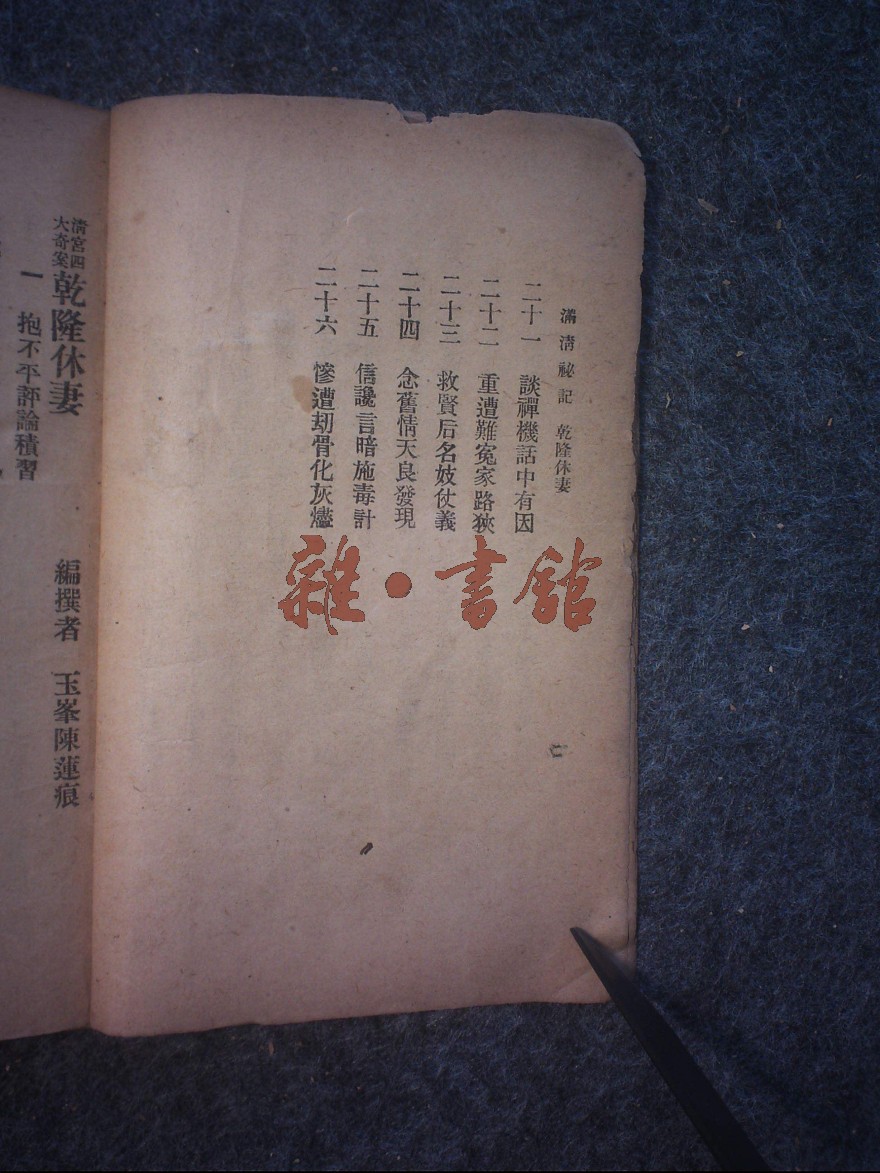 滿淸祕記　乾隆休妻
二十一　談禪機話中有因
二十二　重遭難冤家路狹
二十三　救賢后名妓仗義
二十四　念舊情天良發現
二十五　信讒言暗施毒計
二十六　慘遭刧骨化灰燼
二
雜·書館
淸宮四大奇案　乾隆休妻　編撰者　玉峯陳蓮痕
一　抱不平評論積習